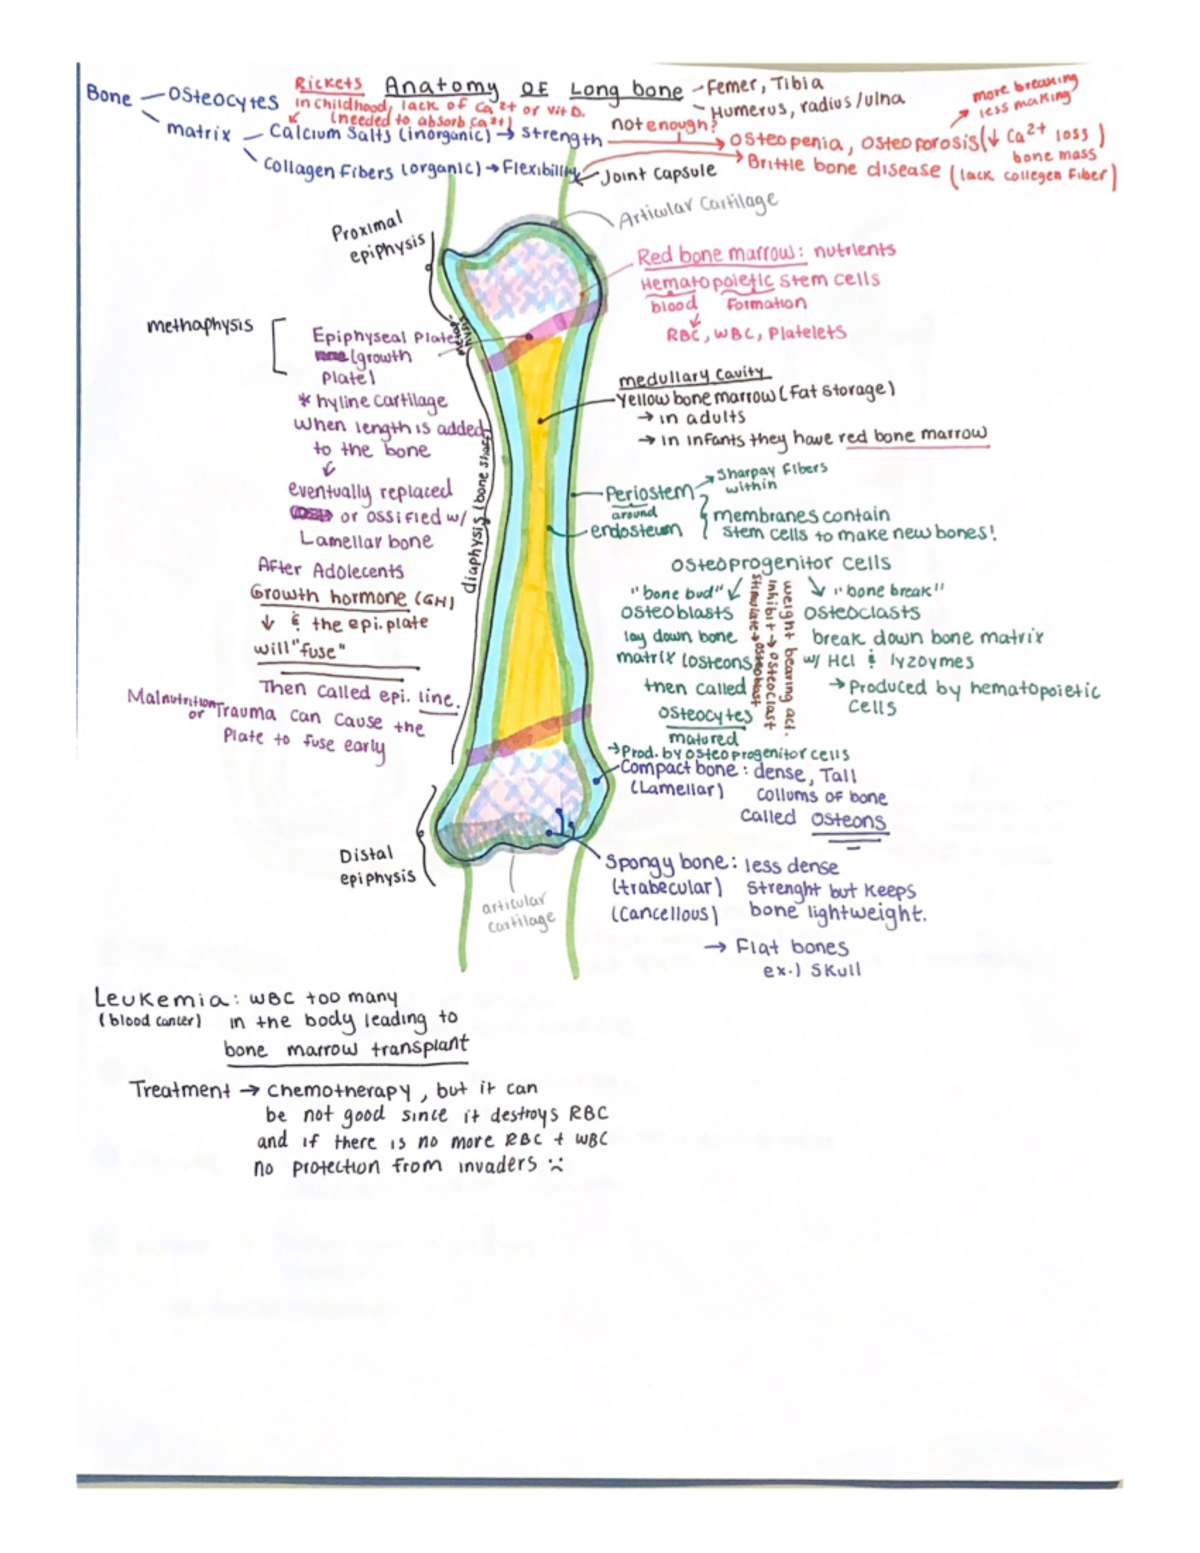 Rickets Anatomy OF Long bone - Femer, Tibia
- Humerus, radius/ulna
more breaking
less making
Bone - Osteocytes
in childhood, lack of Ca2+ or vit D.
(needed to absorb Ca2+)
matrix - Calcium Salts (inorganic) → strength
not enough?
osteopenia, osteoporosis (↓ Ca2+ loss)
bone mass
Collagen Fibers (organic) → Flexibility
Brittle bone disease (lack collegen Fiber)
Joint Capsule
Articular Cartilage
Proximal
epiphysis
Red bone marrow: nutrients
Hematopoietic stem cells
blood Formation
RBC, WBC, Platelets
methaphysis
Epiphyseal Plate
(growth
Plate)
* hyline cartilage
When length is added
to the bone
eventually replaced
or ossified w/
Lamellar bone
After Adolecents
Growth hormone (GH)
↓ & the epi. plate
will "fuse"
Then called epi. line.
Malnutrition
or Trauma can cause the
Plate to fuse early
diaphysis (bone shaft)
medullary cavity
Yellow bone marrow (Fat Storage)
→ in adults
→ in infants they have red bone marrow
Periostem → Sharpay Fibers
within
around
endosteum
membranes contain
stem cells to make new bones!
osteoprogenitor cells
"bone bud" ↙
osteoblasts
lay down bone
matrix (osteons)
then called
osteocytes
matured
→ Prod. by osteoprogenitor cells
weight bearing act.
inhibit → osteoclast
stimulate → osteoblast
↘ "bone break"
osteoclasts
break down bone matrix
w/ HCl & lyzoymes
→ Produced by hematopoietic
cells
Compact bone: dense, Tall
(Lamellar) collums of bone
called osteons
Spongy bone: less dense
(trabecular) Strenght but keeps
(Cancellous) bone lightweight.
→ Flat bones
ex.) Skull
Distal
epiphysis
articular
cartilage
Leukemia: WBC too many
(blood cancer) in the body leading to
bone marrow transplant
Treatment → chemotherapy, but it can
be not good since it destroys RBC
and if there is no more RBC + WBC
no protection from invaders :(